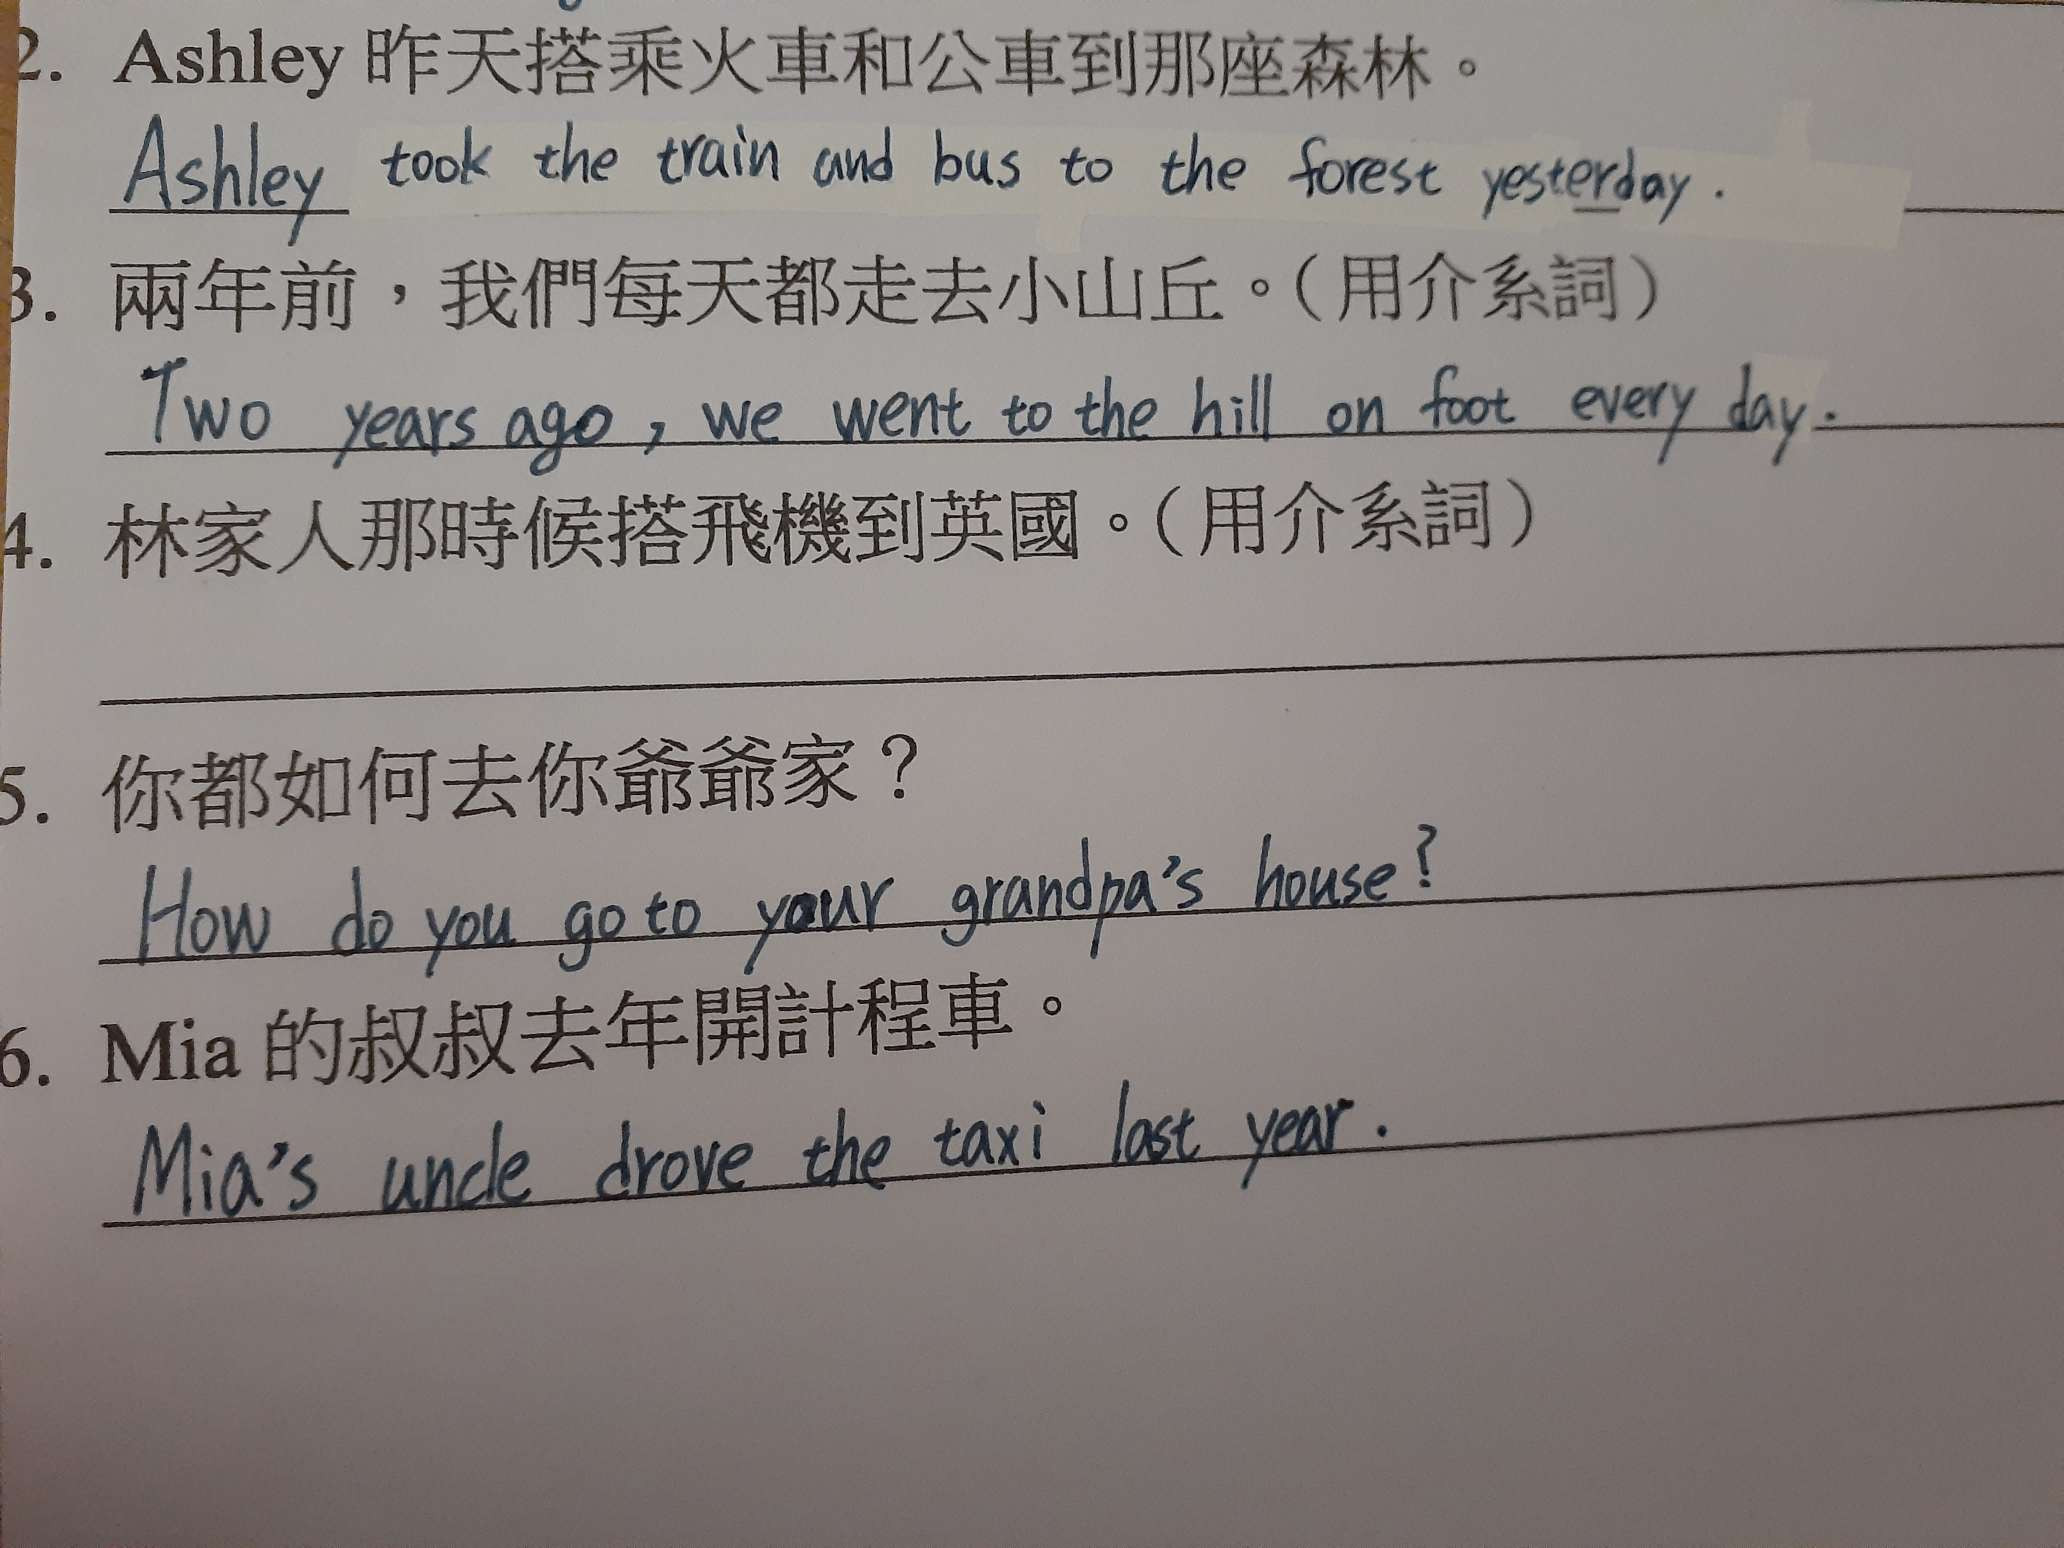 2. Ashley 昨天搭乘火車和公車到那座森林。
Ashley took the train and bus to the forest yesterday.
3. 兩年前，我們每天都走去小山丘。（用介系詞）
Two years ago, we went to the hill on foot every day.
4. 林家人那時候搭飛機到英國。（用介系詞）
5. 你都如何去你爺爺家？
How do you go to your grandpa's house?
6. Mia 的叔叔去年開計程車。
Mia's uncle drove the taxi last year.